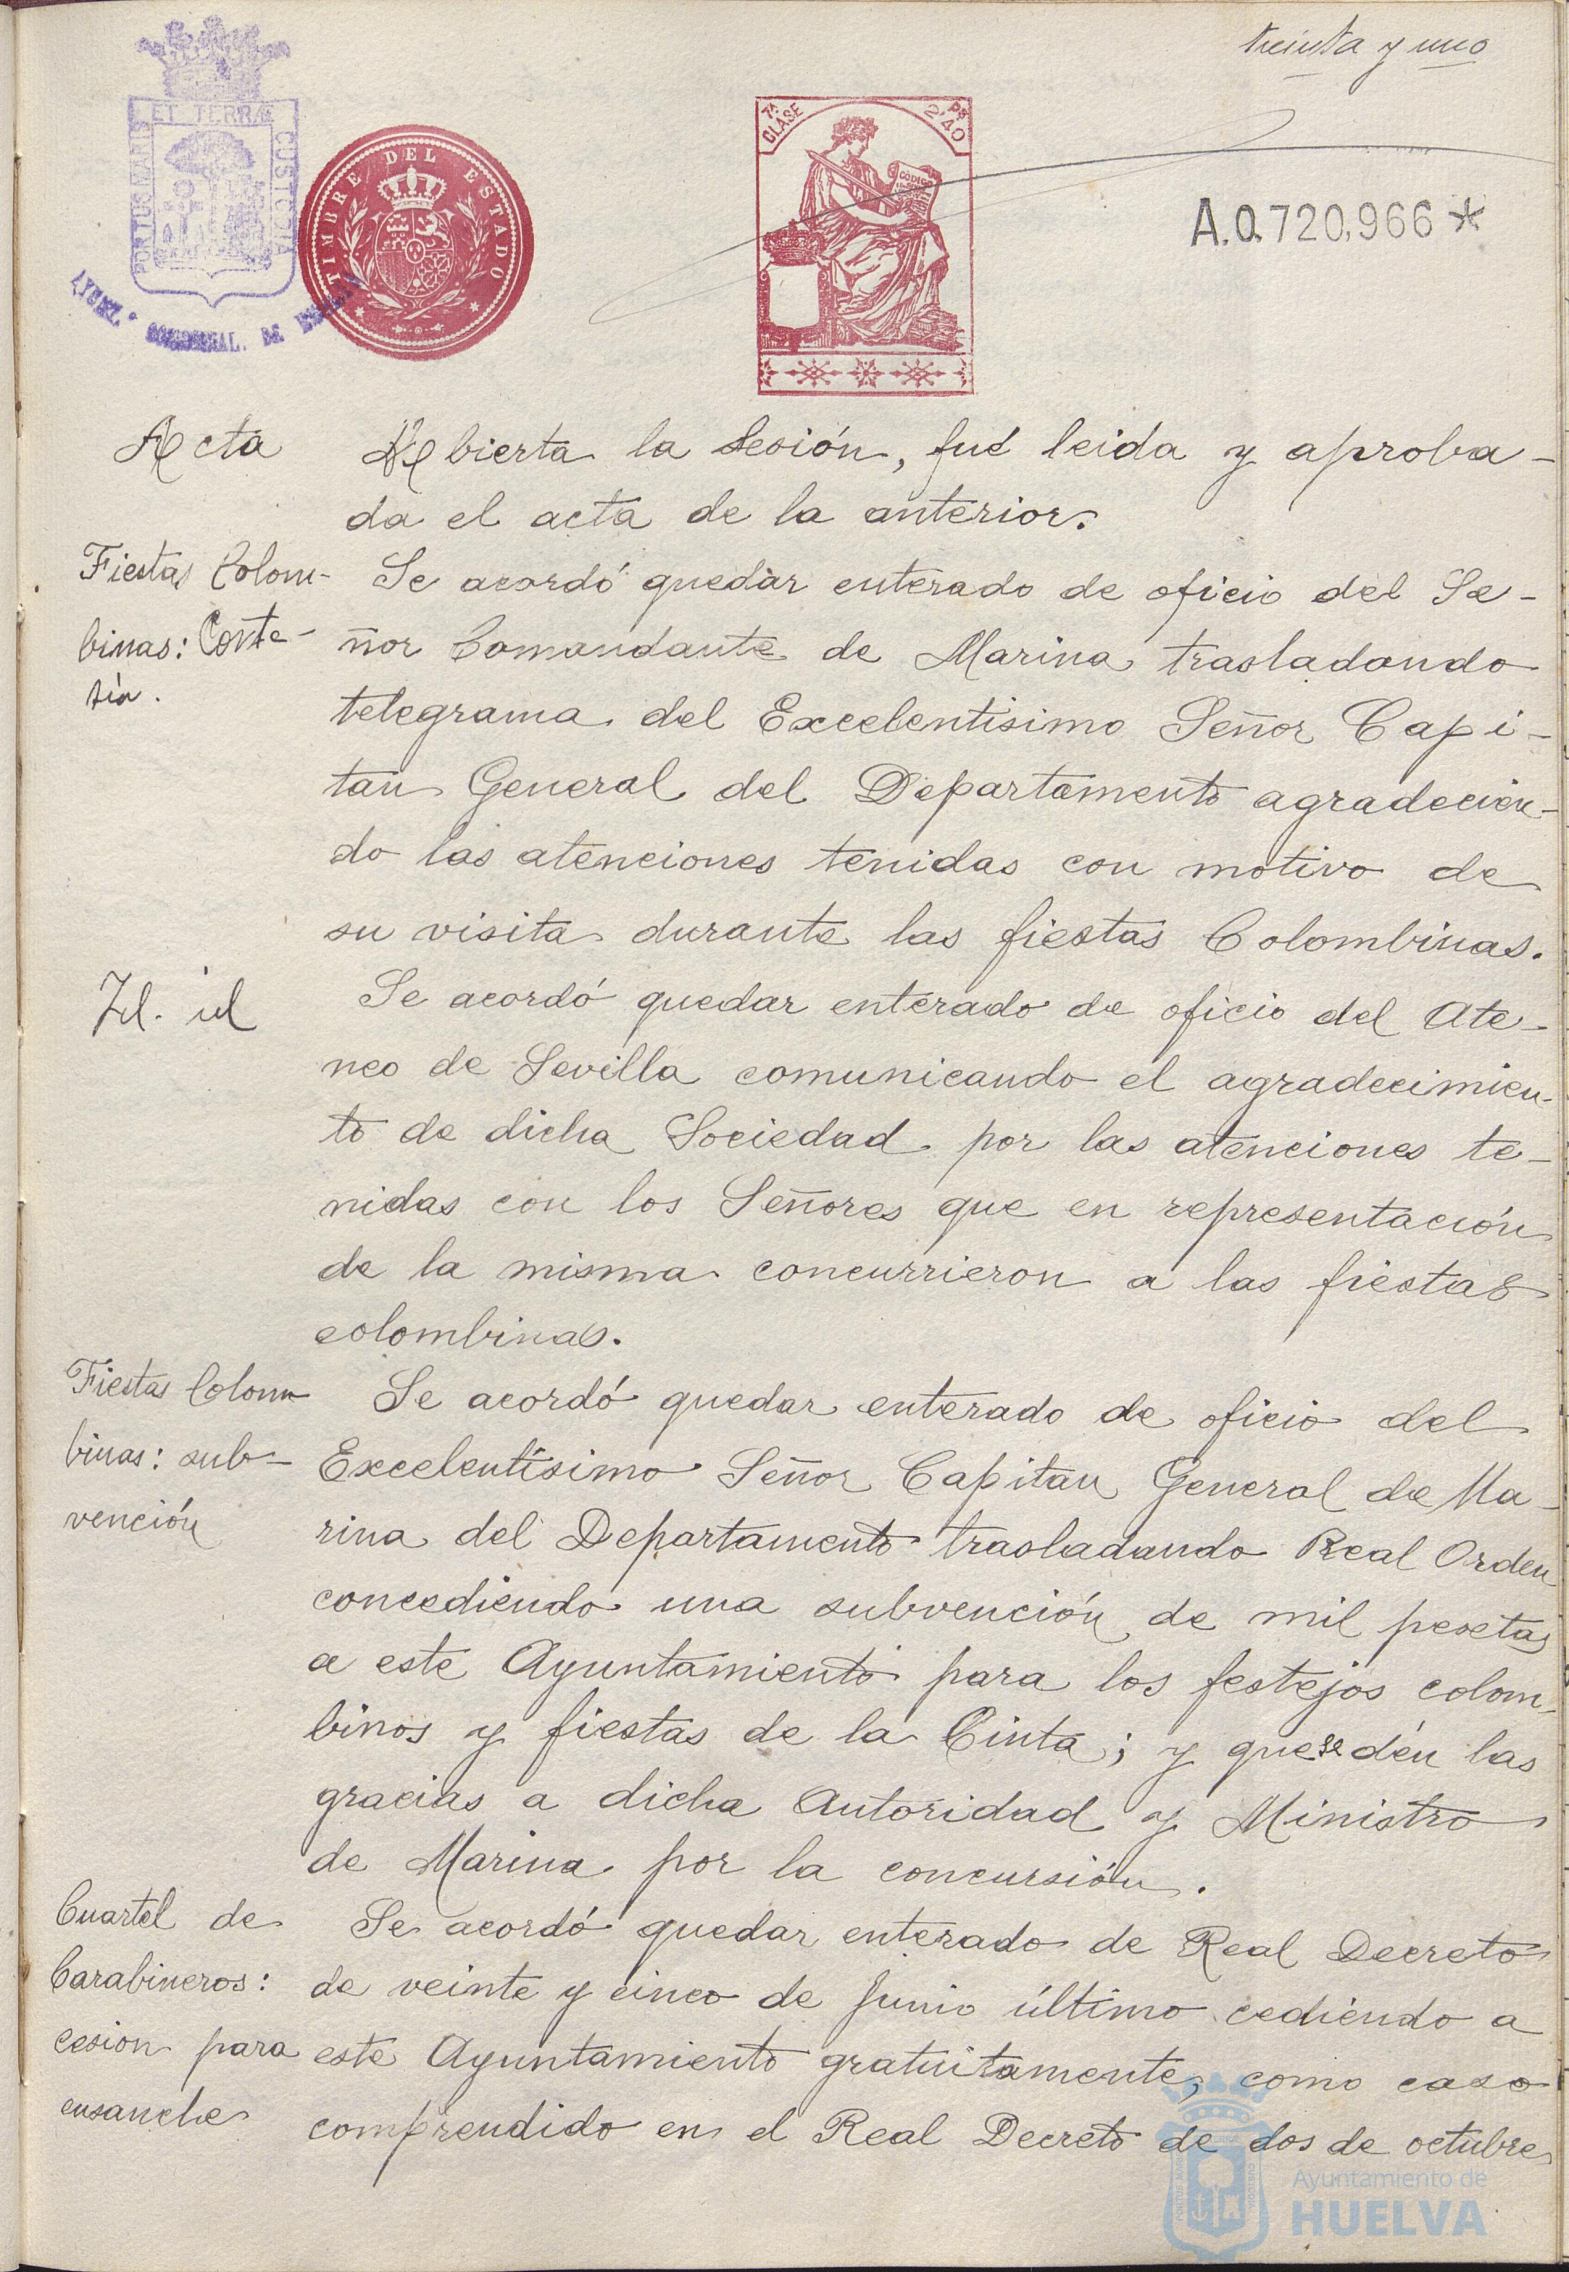 treinta y uno
ET TERRÆ
PORTUS MARIS
CUSTODIA
AYUNT.º
DE
TIMBRE DEL ESTADO
7ª CLASE
Ps 2'40
CÓDIGO
A.0.720,966*
Acta
Abierta la Sesión, fué leida y aproba-
da el acta de la anterior.
Fiestas Colom-
binas: Corte-
sía.
Se acordó quedar enterado de oficio del Se-
ñor Comandante de Marina trasladando
telegrama del Excelentisimo Señor Capi-
tan General del Departamento agradecien-
do las atenciones tenidas con motivo de
su visita durante las fiestas Colombinas.
Id. id
Se acordó quedar enterado de oficio del Ate-
neo de Sevilla comunicando el agradecimien-
to de dicha Sociedad por las atenciones te-
nidas con los Señores que en representación
de la misma concurrieron a las fiestas
colombinas.
Fiestas Colom
binas: sub-
vención
Se acordó quedar enterado de oficio del
Excelentísimo Señor Capitan General de Ma-
rina del Departamento trasladando Real Orden
concediendo una subvención de mil pesetas
a este Ayuntamiento para los festejos colom-
binos y fiestas de la Cinta; y que se dén las
gracias a dicha Autoridad y Ministro
de Marina por la concursión.
Cuartel de
Carabineros:
cesion para
ensanche
Se acordó quedar enterado de Real Decreto
de veinte y cinco de Junio último cediendo a
este Ayuntamiento gratuitamente, como caso
comprendido en el Real Decreto de dos de octubre
Ayuntamiento de
HUELVA